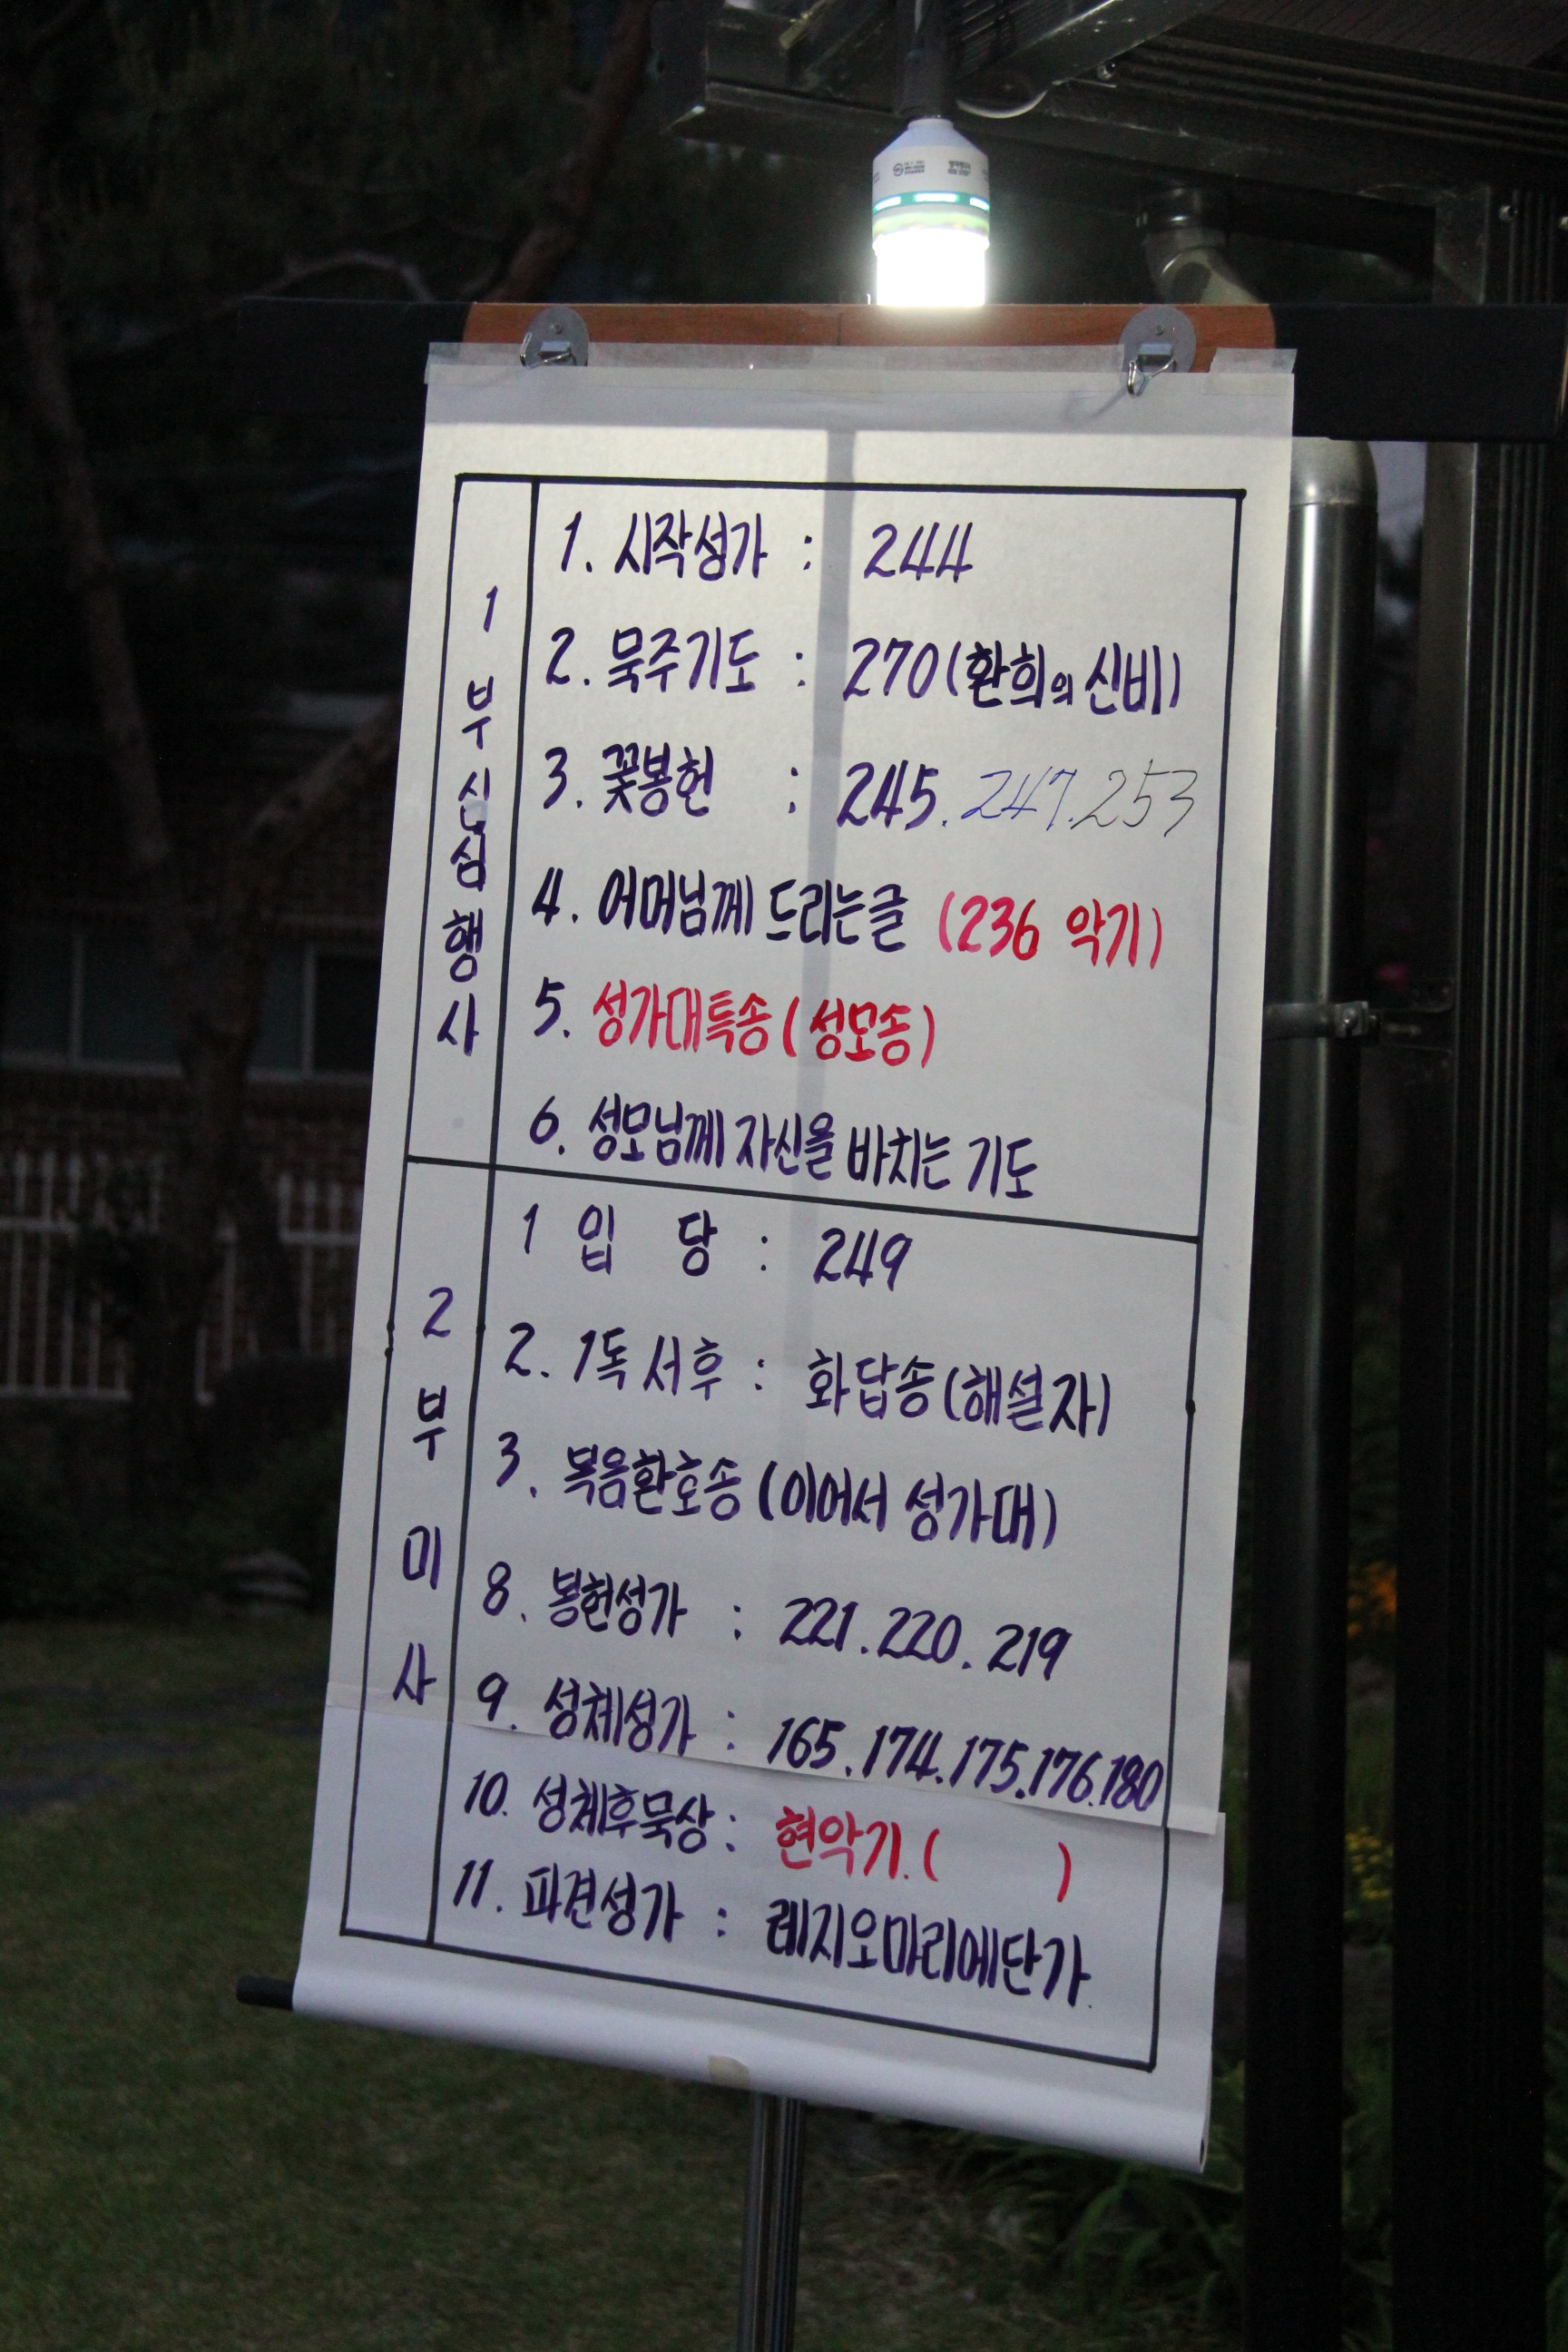 1부 신심행사
1. 시작성가 : 244
2. 묵주기도 : 270 (환희의 신비)
3. 꽃봉헌 : 245. 247. 253
4. 어머님께 드리는글 (236 악기)
5. 성가대특송 (성모송)
6. 성모님께 자신을 바치는 기도
2부 미사
1 입 당 : 249
2. 1독서후 : 화답송 (해설자)
3. 복음환호송 (이어서 성가대)
8. 봉헌성가 : 221. 220. 219
9. 성체성가 : 165. 174. 175. 176. 180
10. 성체후묵상 : 현악기. ( )
11. 파견성가 : 레지오마리에단가.